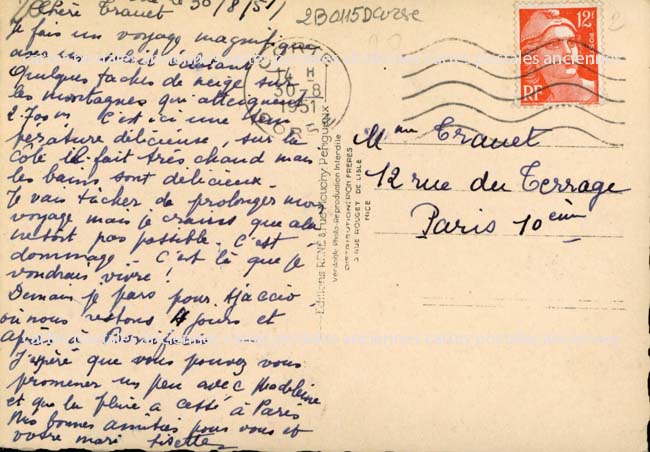 le 30/8/51
Chère Tranet
Je fais un voyage magnifique
avec un
Quelques taches de neige sur
les montagnes qui atteignent
2.700 m. C'est ici une tem
pérature délicieuse, sur la
côte il fait très chaud mais
les bains sont délicieux.
Je vais tâcher de prolonger mon
voyage mais je crains que cela
ne soit pas possible. C'est
dommage. C'est là que je
voudrais vivre!
Demain je pars pour Ajaccio
où nous restons 4 jours et
après à
J'espère que vous pouvez vous
promener un peu avec Madeleine
et que la pluie a cessé à Paris
Mes bonnes amitiés pour vous et
votre mari Lisette
2B0115DCorse
14 H
30-8
1951
CORSE
12F
POSTES
RF
Mme Tranet
12 rue du Terrage
Paris 10ème
Editions RENÉ 8, rue Mouchy Périgueux
Véritable Photo Reproduction Interdite
DISTRIBUTION: RION FRÈRES
3 RUE ROUGET DE LISLE
NICE
cartes postales anciennes